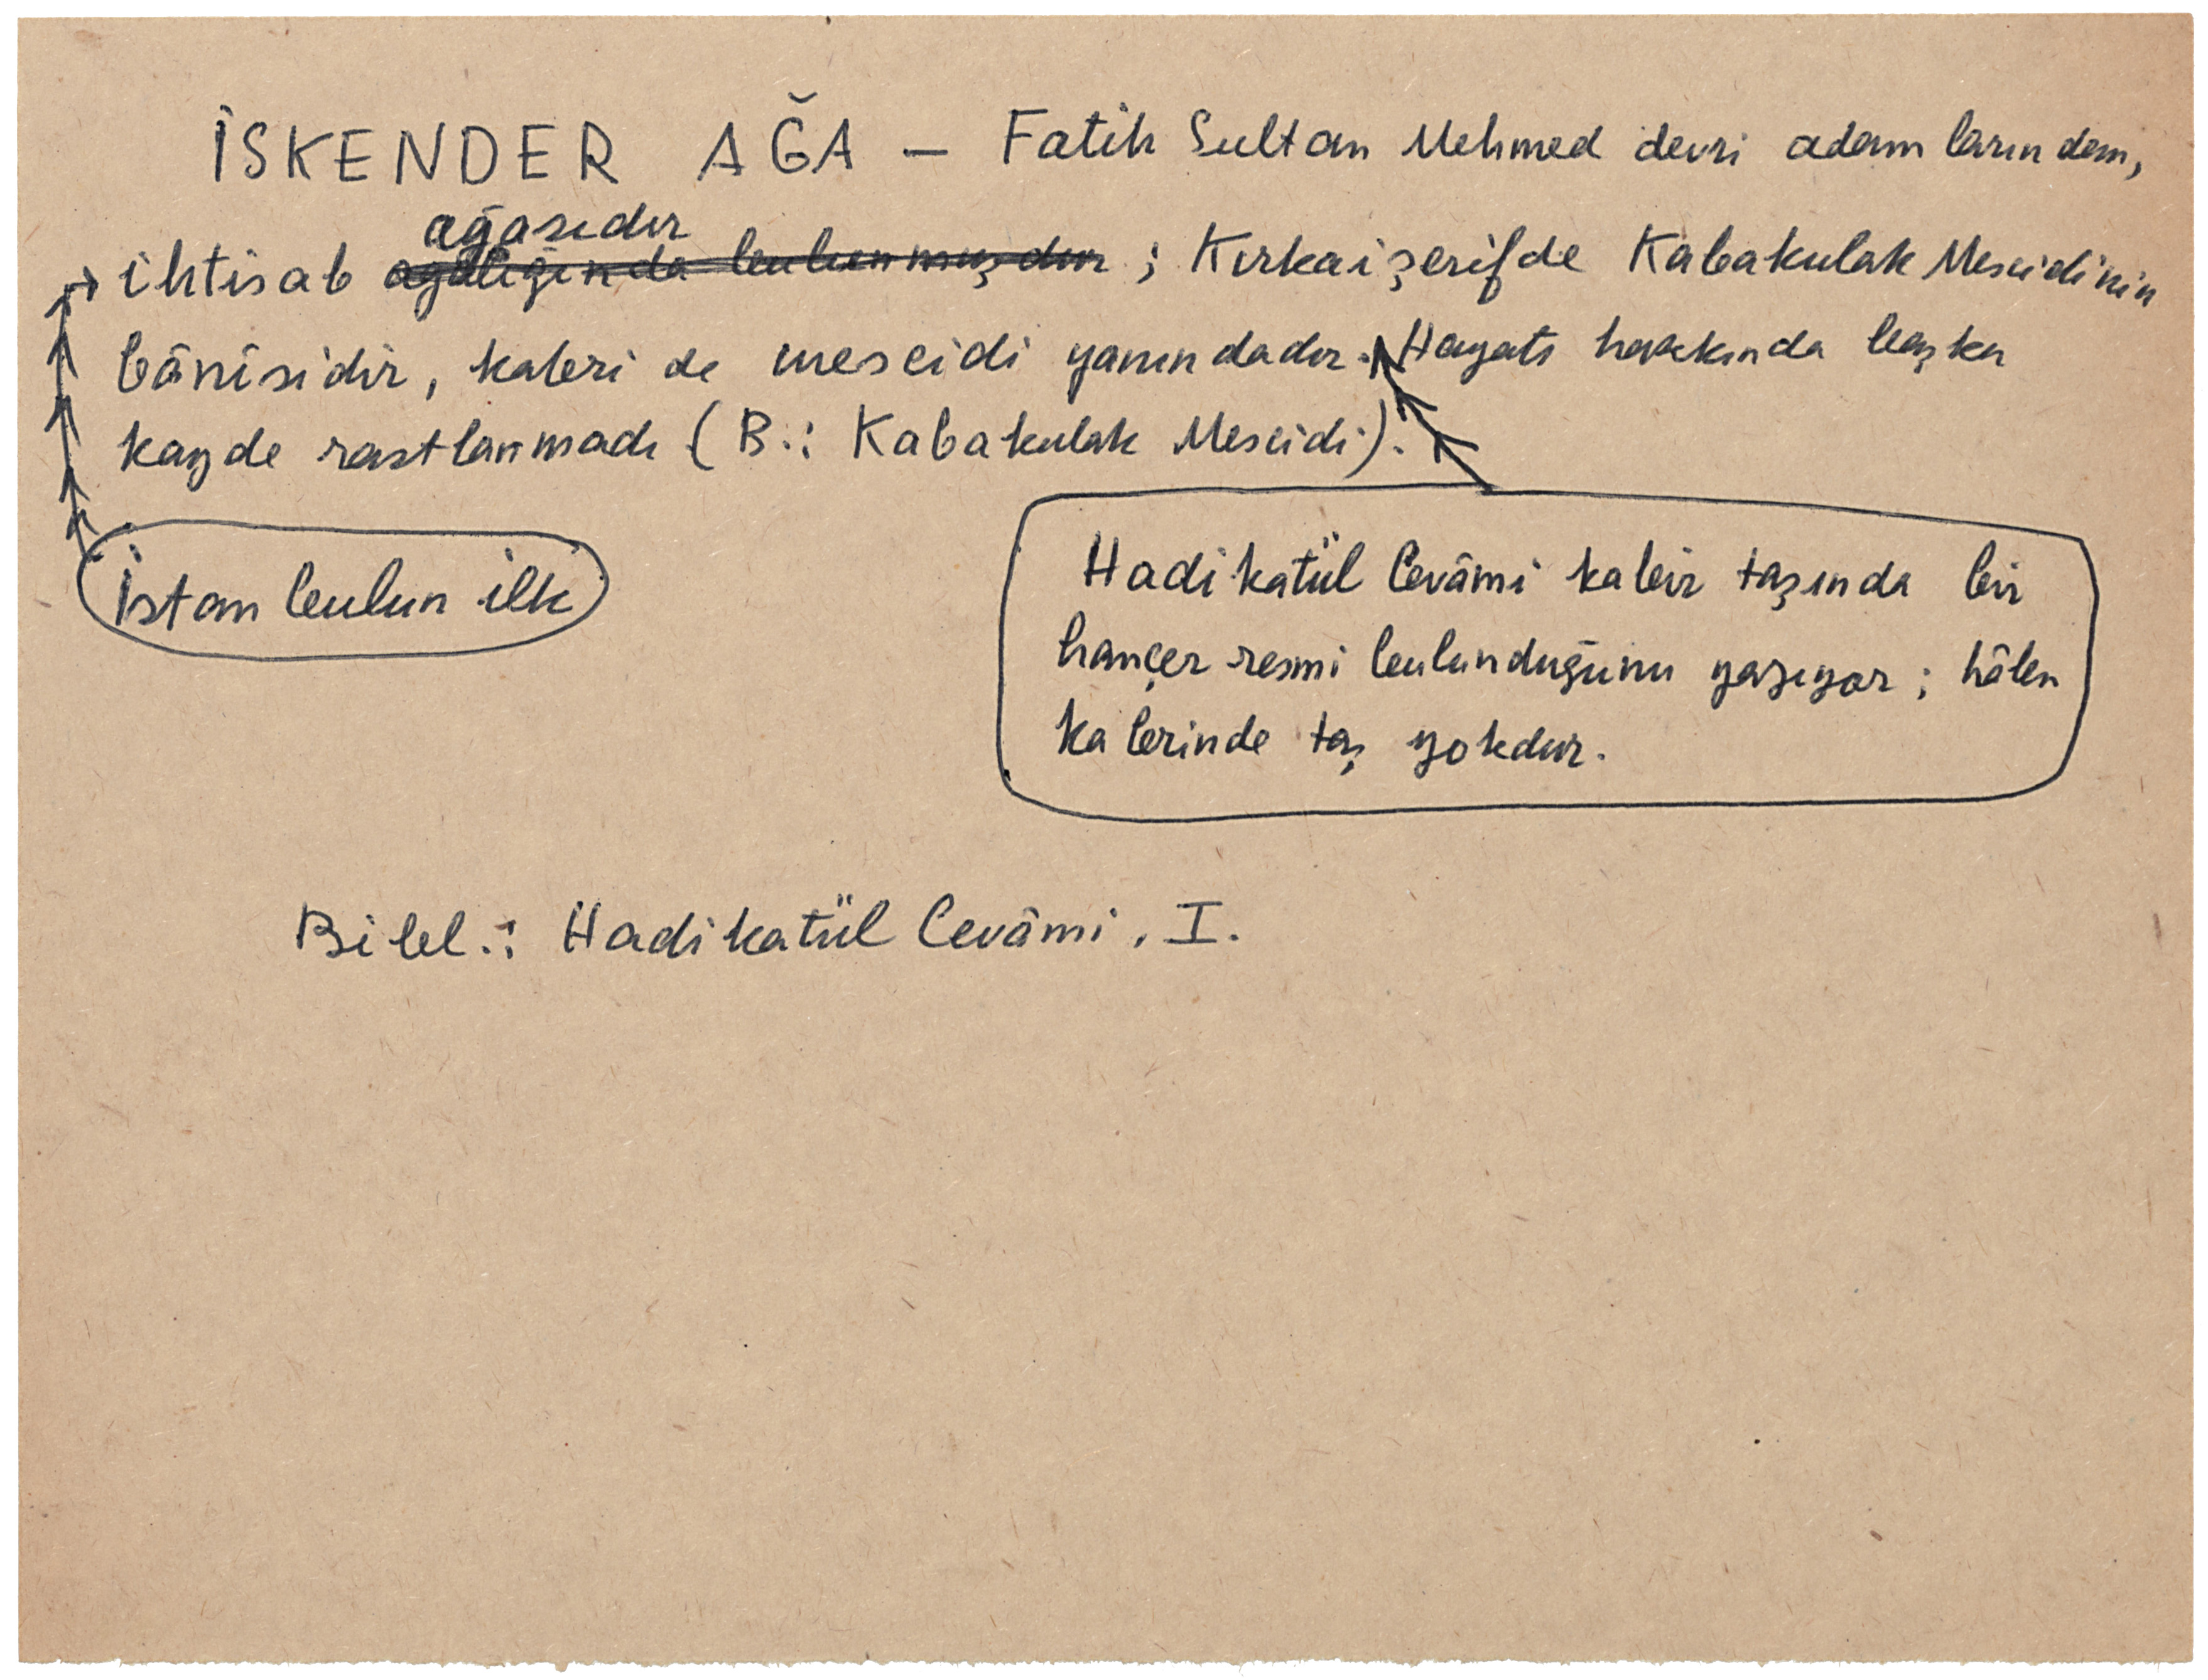 İSKENDER AĞA — Fatih Sultan Mehmed devri adamlarından,
ağasıdır
ihtisab ağalığında bulunmuşdur ; Kırkaişerifde Kabakulak Mescidinin
bânîsidir, kabri de mescidi yanındadır. Hayatı hakkında başka
kayde rastlanmadı (B.: Kabakulak Mescidi).
İstanbulun ilk
Hadikatül Cevâmi kabir taşında bir
hançer resmi bulunduğunu yazıyor ; hâlen
kabrinde taş yokdur.
Bibl.: Hadikatül Cevâmi, I.